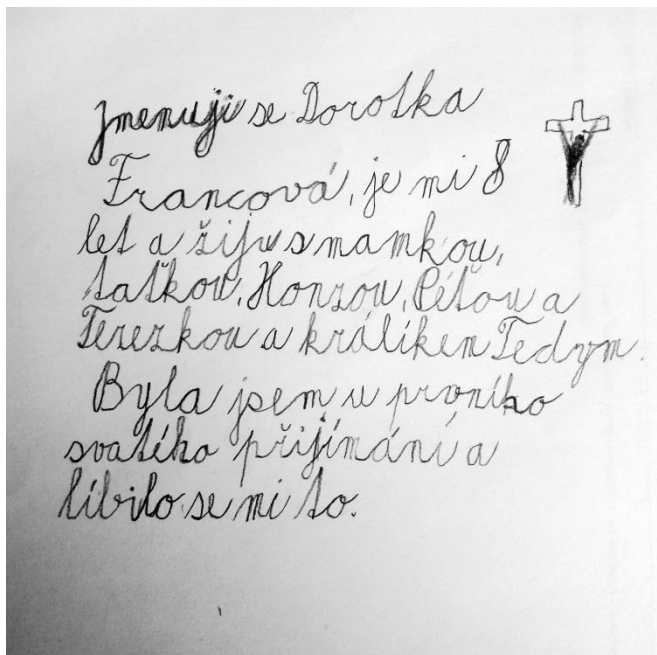 Jmenuji se Dorotka
Francová, je mi 8
let a žiju s mamkou,
taťkou, Honzou, Péťou a
Terezkou a králíkem Tedym.
Byla jsem u prvního
svatého přijímání a
líbilo se mi to.